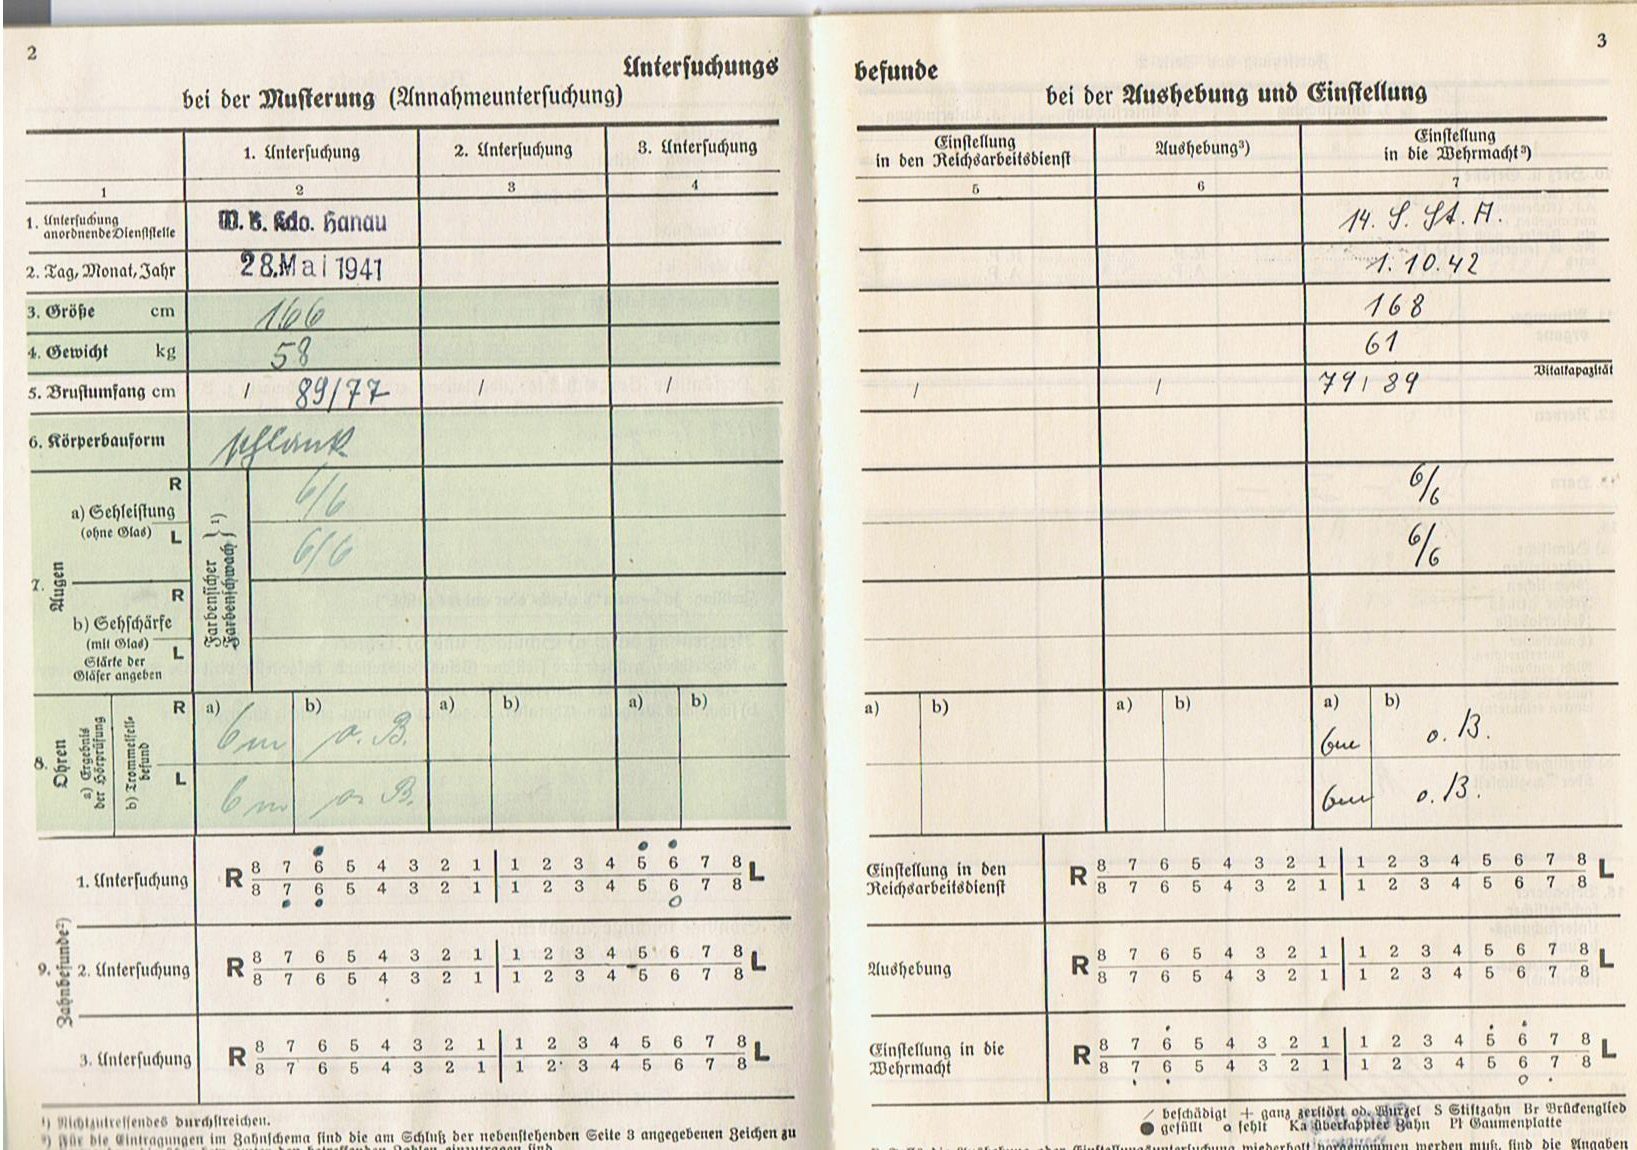 2
Untersuchungs
bei der Musterung (Annahmeuntersuchung)
1. Untersuchung 2. Untersuchung 3. Untersuchung
1 2 3 4
1. Untersuchung anordnende Dienststelle W. B. Kdo. Hanau
2. Tag, Monat, Jahr 28. Mai 1941
3. Größe cm 166
4. Gewicht kg 58
5. Brustumfang cm / 89/77 / /
6. Körperbauform schlank
7. Augen
a) Sehleistung (ohne Glas)
R 6/6
L 6/6
Farbensicher
Farbenschwach } ¹)
b) Sehschärfe (mit Glas) Stärke der Gläser angeben
R
L
8. Ohren
a) Ergebnis der Hörprüfung
b) Trommelfellbefund
R a) b) a) b) a) b)
6m o. B.
L 6m o. B.
9. Zahnbefunde²)
1. Untersuchung R 8 7 6 5 4 3 2 1 1 2 3 4 5 6 7 8 L
8 7 6 5 4 3 2 1 1 2 3 4 5 6 7 8
2. Untersuchung R 8 7 6 5 4 3 2 1 1 2 3 4 5 6 7 8 L
8 7 6 5 4 3 2 1 1 2 3 4 5 6 7 8
3. Untersuchung R 8 7 6 5 4 3 2 1 1 2 3 4 5 6 7 8 L
8 7 6 5 4 3 2 1 1 2 3 4 5 6 7 8
¹) Nichtzutreffendes durchstreichen.
²) Für die Eintragungen im Zahnschema sind die am Schluß der nebenstehenden Seite 3 angegebenen Zeichen zu
3
befunde
bei der Aushebung und Einstellung
Einstellung in den Reichsarbeitsdienst Aushebung³) Einstellung in die Wehrmacht³)
5 6 7
14. S. St. A.
1. 10. 42
168
61
/ / 79 / 89 Vitalkapazität
6/6
6/6
a) b) a) b) a) b)
6m o. B.
6m o. B.
Einstellung in den Reichsarbeitsdienst R 8 7 6 5 4 3 2 1 1 2 3 4 5 6 7 8 L
8 7 6 5 4 3 2 1 1 2 3 4 5 6 7 8
Aushebung R 8 7 6 5 4 3 2 1 1 2 3 4 5 6 7 8 L
8 7 6 5 4 3 2 1 1 2 3 4 5 6 7 8
Einstellung in die Wehrmacht R 8 7 6 5 4 3 2 1 1 2 3 4 5 6 7 8 L
8 7 6 5 4 3 2 1 1 2 3 4 5 6 7 8
/ beschädigt + ganz zerstört od. Wurzel S Stiftzahn Br Brückenglied
● gefüllt o fehlt Ka überkappter Zahn Pl Gaumenplatte